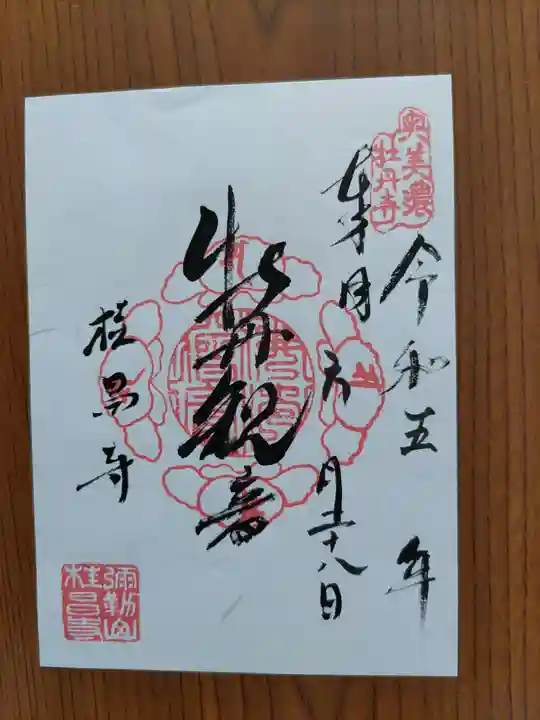 奥美濃
牡丹寺
令和五年
奉拝
六月二十八日
牡丹観音
桂昌寺
彌勒山
桂昌寺